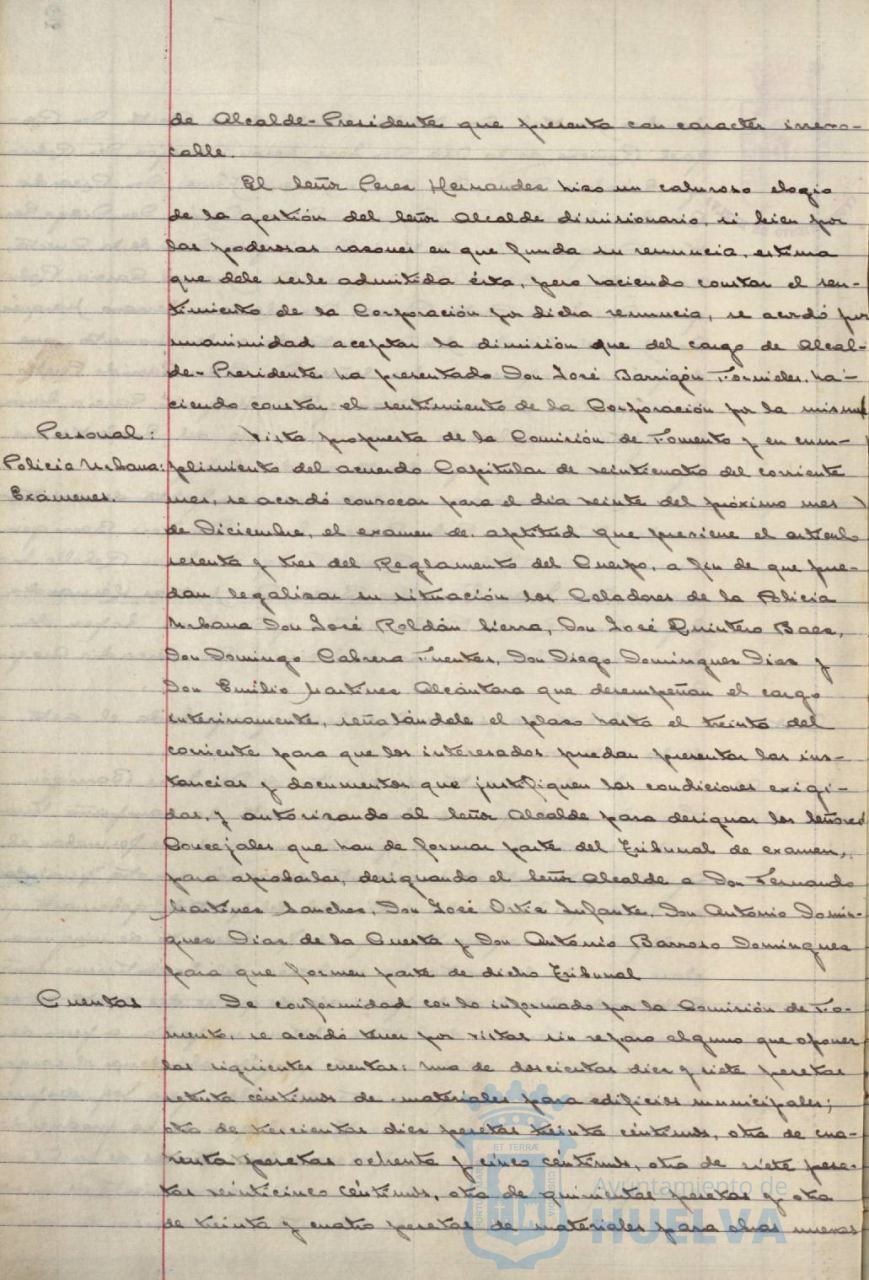 de Alcalde-Presidente que presenta con caracter irrevo-
cable.
El Señor Perez Hernandez hizo un caluroso elogio
de la gestión del Señor Alcalde dimisionario, si bien por
las poderosas razones en que funda su renuncia, estima
que debe serle admitida ésta, pero haciendo constar el sen-
timiento de la Corporación por dicha renuncia, se acordó por
unanimidad aceptar la dimisión que del cargo de Alcal-
de-Presidente ha presentado Don José Barrigón Fornieles, ha-
ciendo constar el sentimiento de la Corporación por la misma
Personal:
Policia Urbana:
Exámenes.
Vista propuesta de la Comisión de Fomento y en cum-
plimiento del acuerdo Capitular de veinticuatro del corriente
mes, se acordó convocar para el dia veinte del próximo mes
de Diciembre, el examen de aptitud que previene el artículo
sesenta y tres del Reglamento del Cuerpo, a fin de que pue-
dan legalizar su situación los Celadores de la Policia
Urbana Don José Roldán Sierra, Don José Quintero Baez,
Don Domingo Cabrera Fuentes, Don Diego Dominguez Diaz y
Don Emilio Martinez Alcántara que desempeñan el cargo
interinamente, señalándole el plazo hasta el treinta del
corriente para que los interesados puedan presentar las ins-
tancias y documentos que justifiquen las condiciones exigi-
das, y autorizando al Señor Alcalde para designar los Señores
Concejales que han de formar parte del Tribunal de examen,
para aprobarlas, designando el Señor Alcalde a Don Fernando
Martinez Sanchez, Don José Ortiz Infante, Don Antonio Domin-
guez Diaz de la Cuesta y Don Antonio Barroso Dominguez
para que formen parte de dicho Tribunal
Cuentas
De conformidad con lo informado por la Comisión de Fo-
mento, se acordó tener por vistas sin reparo alguno que oponer
las siguientes cuentas: una de doscientas diez y siete pesetas
setenta céntimos de materiales para edificios municipales;
otra de trescientas diez pesetas treinta céntimos, otra de cua-
renta pesetas ochenta y cinco céntimos, otra de siete pese-
tas veinticinco céntimos, otra de quinientas pesetas y otra
de treinta y cuatro pesetas de materiales para obras nuevas
Ayuntamiento de
HUELVA